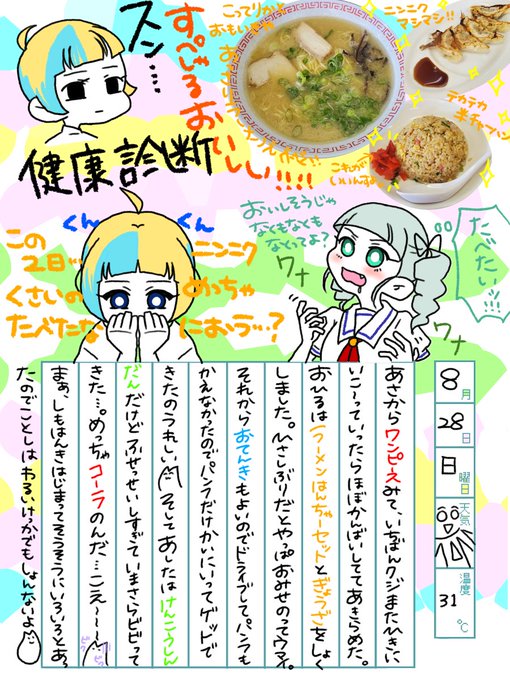 スン…
すぺしゃる
おいしい!!!!
こってりかと
おもいきや
ニンニク
マシマシ!!
テカテカ
半チャーハン
これが
いいんすよ
健康診断
おいしそうじゃ
なくもなくも
なくってよ?
たべたいッ!!
ワナ
ワナ
くん
くん
この
2日…
くさいの
たべたな
ニンニク
めっちゃ
におうッ…?
8月
28日
日曜日
天気
温度
31℃
あさからワンピースみて、いちばんクジまたひきに
いこ〜っていったらほぼかんばいしててあきらめた。
おひるはラーメンはんちゃーセットとぎょうざをしょく
しました。ひさしぶりだとやっぱおみせのってウマイ。
それからおてんきもよいのでドライブしてパンフも
かえなかったのでパンフだけかいにいってゲットで
きたのうれしい。そしてあしたはけんこうしん
だんだけどふせっせいしすぎていまさらビビって
きた…。めっちゃコーラのんだ…こえ〜〜
まぁ、しもはんきはじまってそうそうにいろいろとあっ
たのでことしはわるいけっかでもしょんないよ